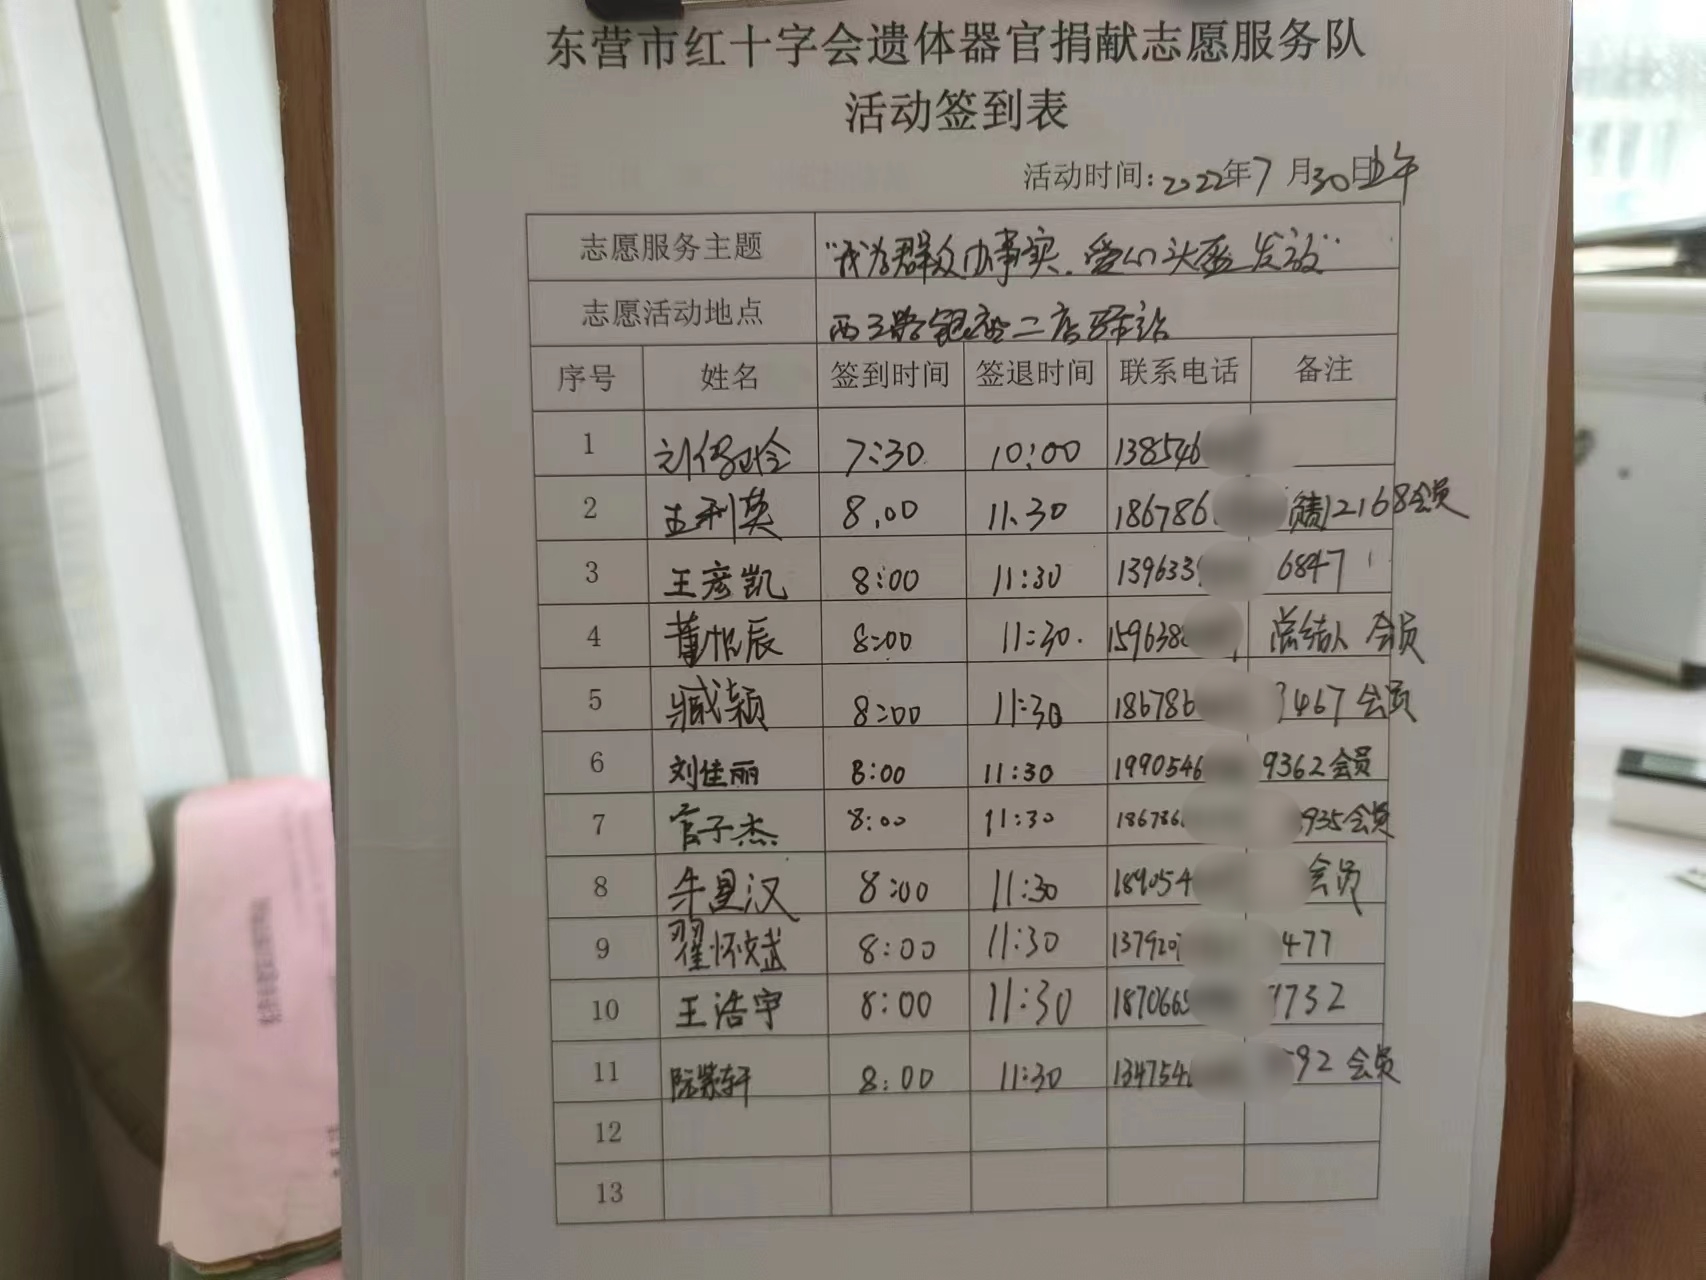 东营市红十字会遗体器官捐献志愿服务队
活动签到表
活动时间:2022年7月30日上午
志愿服务主题 "我为群众办事实.爱心头盔发放"
志愿活动地点 西三路银座二店驿站
序号 姓名 签到时间 签退时间 联系电话 备注
1 7:30 10:00 138546
2 王利英 8.00 11.30 186786 12168会员
3 王彦凯 8:00 11:30 139633 6847
4 8:00 11:30. 159638 会员
5 臧颖 8:00 11:30 186786 467 会员
6 刘佳丽 8:00 11:30 1990546 9362会员
7 官子杰 8:00 11:30 186786 935会员
8 牛星汉 8:00 11:30 189054 会员
9 翟怀斌 8:00 11:30 137920 477
10 王浩宇 8:00 11:30 187066 732
11 阮紫轩 8:00 11:30 134754 592 会员
12
13